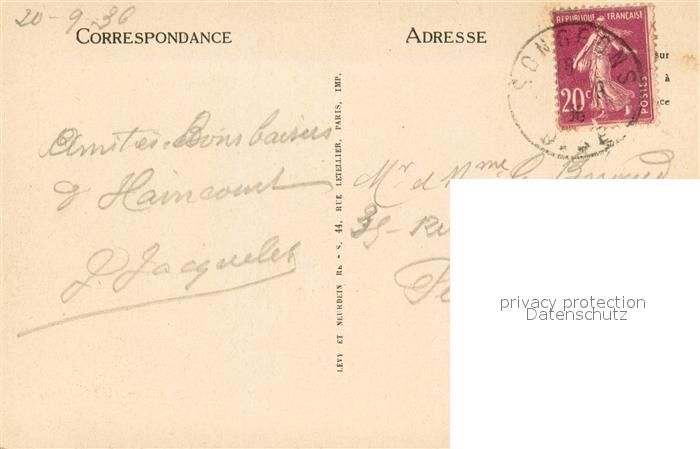 20-9-36
CORRESPONDANCE
ADRESSE
RÉPUBLIQUE FRANÇAISE
20c
POSTES
SONGEONS
OISE
sur
à
ce
Amitiés Bons baisers
d'Haincourt
J. Jacquelet
Mr et Mme
35 - Ru
LÉVY ET NEURDEIN RÉUNIS - S. 44, RUE LETELLIER, PARIS, IMP.
privacy protection
Datenschutz